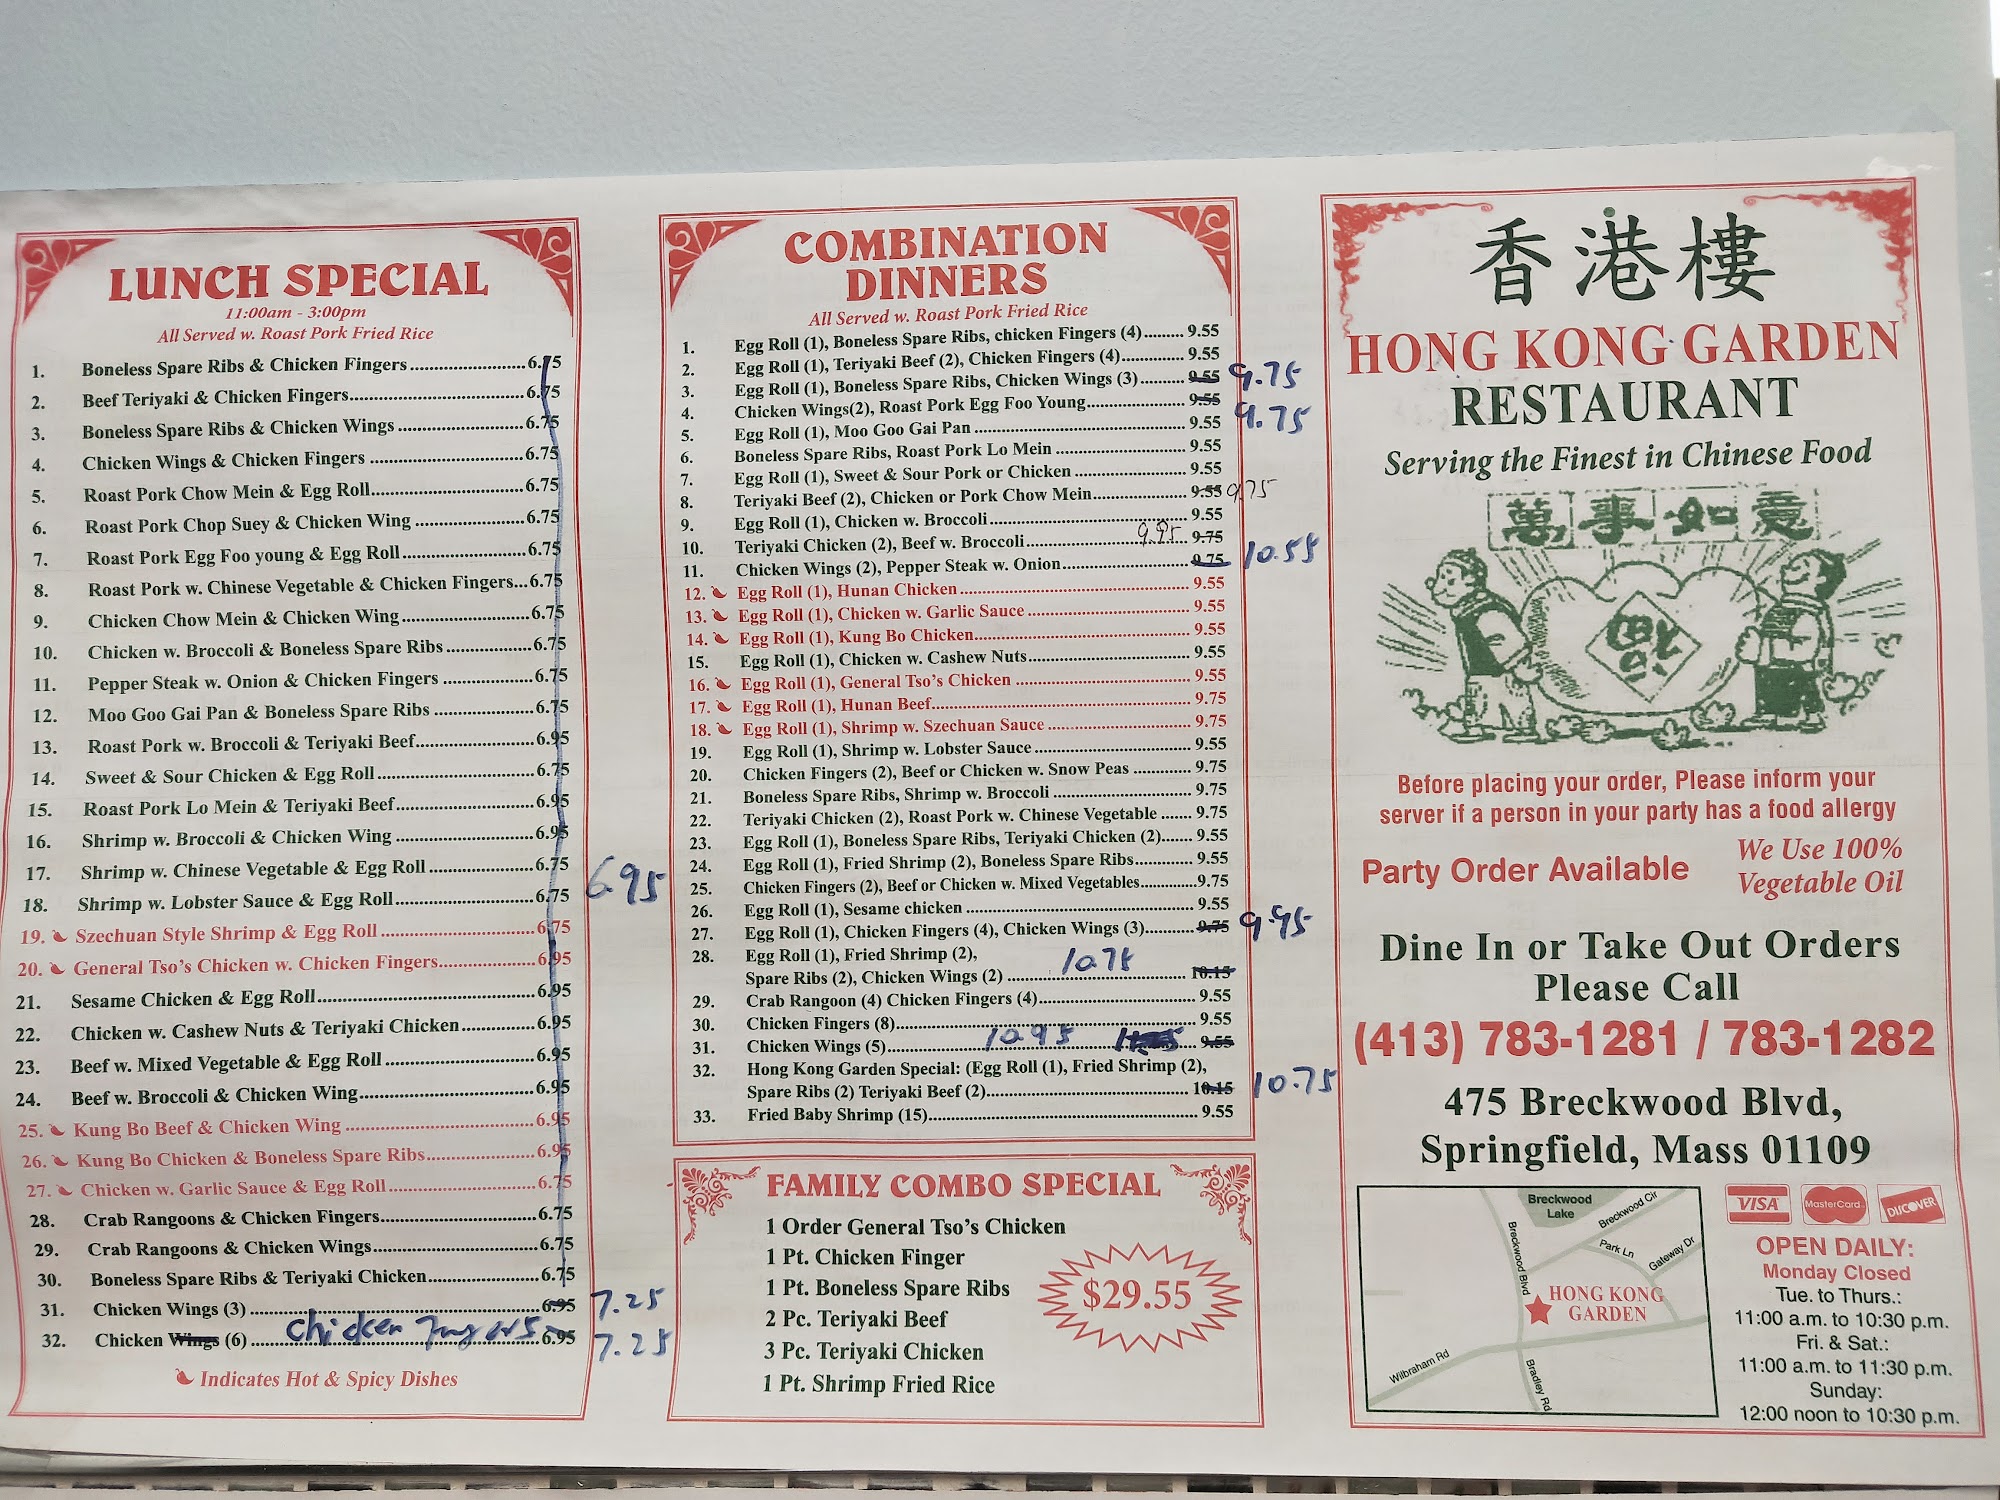 LUNCH SPECIAL
11:00am - 3:00pm
All Served w. Roast Pork Fried Rice
1. Boneless Spare Ribs & Chicken Fingers 6.75
2. Beef Teriyaki & Chicken Fingers 6.75
3. Boneless Spare Ribs & Chicken Wings 6.75
4. Chicken Wings & Chicken Fingers 6.75
5. Roast Pork Chow Mein & Egg Roll 6.75
6. Roast Pork Chop Suey & Chicken Wing 6.75
7. Roast Pork Egg Foo young & Egg Roll 6.75
8. Roast Pork w. Chinese Vegetable & Chicken Fingers 6.75
9. Chicken Chow Mein & Chicken Wing 6.75
10. Chicken w. Broccoli & Boneless Spare Ribs 6.75
11. Pepper Steak w. Onion & Chicken Fingers 6.75
12. Moo Goo Gai Pan & Boneless Spare Ribs 6.75
13. Roast Pork w. Broccoli & Teriyaki Beef 6.95
14. Sweet & Sour Chicken & Egg Roll 6.75
15. Roast Pork Lo Mein & Teriyaki Beef 6.95
16. Shrimp w. Broccoli & Chicken Wing 6.95
17. Shrimp w. Chinese Vegetable & Egg Roll 6.75
6.95
18. Shrimp w. Lobster Sauce & Egg Roll 6.75
19. Szechuan Style Shrimp & Egg Roll 6.75
20. General Tso's Chicken w. Chicken Fingers 6.95
21. Sesame Chicken & Egg Roll 6.95
22. Chicken w. Cashew Nuts & Teriyaki Chicken 6.95
23. Beef w. Mixed Vegetable & Egg Roll 6.95
24. Beef w. Broccoli & Chicken Wing 6.95
25. Kung Bo Beef & Chicken Wing 6.95
26. Kung Bo Chicken & Boneless Spare Ribs 6.95
27. Chicken w. Garlic Sauce & Egg Roll 6.75
28. Crab Rangoons & Chicken Fingers 6.75
29. Crab Rangoons & Chicken Wings 6.75
30. Boneless Spare Ribs & Teriyaki Chicken 6.75
31. Chicken Wings (3) 6.95 7.25
32. Chicken Wings (6) chicken 6.95 7.25
Indicates Hot & Spicy Dishes
COMBINATION
DINNERS
All Served w. Roast Pork Fried Rice
1. Egg Roll (1), Boneless Spare Ribs, chicken Fingers (4) 9.55
2. Egg Roll (1), Teriyaki Beef (2), Chicken Fingers (4) 9.55
3. Egg Roll (1), Boneless Spare Ribs, Chicken Wings (3) 9.55 9.75
4. Chicken Wings(2), Roast Pork Egg Foo Young 9.55 9.75
5. Egg Roll (1), Moo Goo Gai Pan 9.55
6. Boneless Spare Ribs, Roast Pork Lo Mein 9.55
7. Egg Roll (1), Sweet & Sour Pork or Chicken 9.55
8. Teriyaki Beef (2), Chicken or Pork Chow Mein 9.55 9.75
9. Egg Roll (1), Chicken w. Broccoli 9.55
10. Teriyaki Chicken (2), Beef w. Broccoli 9.95 9.75
11. Chicken Wings (2), Pepper Steak w. Onion 9.75 10.55
12. Egg Roll (1), Hunan Chicken 9.55
13. Egg Roll (1), Chicken w. Garlic Sauce 9.55
14. Egg Roll (1), Kung Bo Chicken 9.55
15. Egg Roll (1), Chicken w. Cashew Nuts 9.55
16. Egg Roll (1), General Tso's Chicken 9.55
17. Egg Roll (1), Hunan Beef 9.75
18. Egg Roll (1), Shrimp w. Szechuan Sauce 9.75
19. Egg Roll (1), Shrimp w. Lobster Sauce 9.55
20. Chicken Fingers (2), Beef or Chicken w. Snow Peas 9.75
21. Boneless Spare Ribs, Shrimp w. Broccoli 9.75
22. Teriyaki Chicken (2), Roast Pork w. Chinese Vegetable 9.75
23. Egg Roll (1), Boneless Spare Ribs, Teriyaki Chicken (2) 9.55
24. Egg Roll (1), Fried Shrimp (2), Boneless Spare Ribs 9.55
25. Chicken Fingers (2), Beef or Chicken w. Mixed Vegetables 9.75
26. Egg Roll (1), Sesame chicken 9.55
27. Egg Roll (1), Chicken Fingers (4), Chicken Wings (3) 9.75 9.95
28. Egg Roll (1), Fried Shrimp (2),
Spare Ribs (2), Chicken Wings (2) 10.75 10.15
29. Crab Rangoon (4) Chicken Fingers (4) 9.55
30. Chicken Fingers (8) 9.55
31. Chicken Wings (5) 10.95 9.55
32. Hong Kong Garden Special: (Egg Roll (1), Fried Shrimp (2),
Spare Ribs (2) Teriyaki Beef (2) 10.15 10.75
33. Fried Baby Shrimp (15) 9.55
FAMILY COMBO SPECIAL
1 Order General Tso's Chicken
1 Pt. Chicken Finger
1 Pt. Boneless Spare Ribs
2 Pc. Teriyaki Beef
3 Pc. Teriyaki Chicken
1 Pt. Shrimp Fried Rice
$29.55
香港樓
HONG KONG GARDEN
RESTAURANT
Serving the Finest in Chinese Food
萬事如意
福
Before placing your order, Please inform your
server if a person in your party has a food allergy
Party Order Available
We Use 100%
Vegetable Oil
Dine In or Take Out Orders
Please Call
(413) 783-1281 / 783-1282
475 Breckwood Blvd,
Springfield, Mass 01109
Breckwood
Lake
Breckwood Cir
Breckwood Blvd
Park Ln
Gateway Dr
HONG KONG
GARDEN
Wilbraham Rd
Bradley Rd
VISA
MasterCard
DISCOVER
OPEN DAILY:
Monday Closed
Tue. to Thurs.:
11:00 a.m. to 10:30 p.m.
Fri. & Sat.:
11:00 a.m. to 11:30 p.m.
Sunday:
12:00 noon to 10:30 p.m.